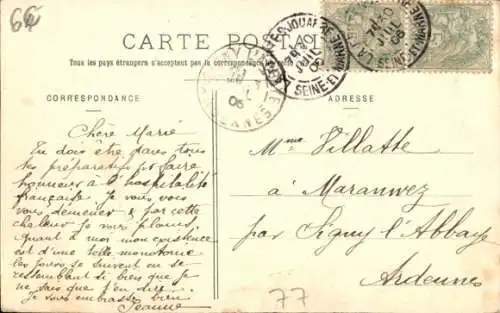 6€
CARTE POSTALE
Tous les pays étrangers n'acceptent pas la correspondance
CORRESPONDANCE
ADRESSE
LA FERTÉ-S-JOUARRE
SEINE-ET-MARNE
Chère Marie
Tu dois être dans tous
tes préparatifs pr faire
honneur à l'hospitalité
française. Je vous vois
vous démener & par cette
chaleur je vous plains.
Quant à moi mon existence
est d'une telle monotonie
les jours se suivent en se
ressemblant si bien que je
ne sais que t'en dire.
Je vous embrasse bien
Jeanne
Mme Villatte
à Maranwez
par Signy l'Abbaye
Ardennes
77